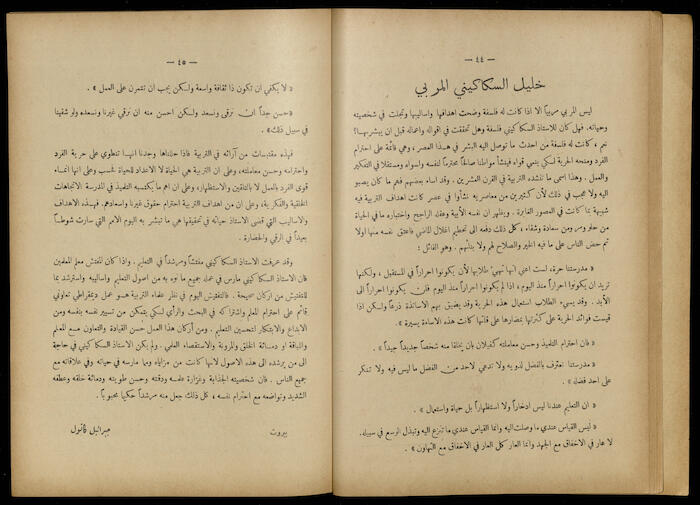 — ٤٤ —
خليل السكاكيني المربي
ليس المربي مربياً الا اذا كانت له فلسفة وضحت اهدافها واساليبها وتجلت في شخصيته
وحياته. فهل كان للاستاذ السكاكيني فلسفة وهل تحققت في اقواله واعماله قبل ان يبشر بها؟
نعم، كانت له فلسفة من احدث ما توصل اليه البشر في هذا العصر، وهي قائمة على احترام
الفرد ومنحه الحرية لكي ينمي قواه فينشأ مواطناً صالحاً محترماً لنفسه ولسواه ومستقلا في التفكير
والعمل. وهذا اسمى ما تنشده التربية في القرن العشرين. وقد اساء بعضهم فهم ما كان يصبو
اليه ولا عجب في ذلك لأن كثيرين من معاصريه نشأوا في عصر كانت اهداف التربية فيه
شبيهة بما كانت في العصور الغابرة. ويظهر ان نفسه الأبية وعقله الراجح واختباره ما في الحياة
من حلو ومر ومن سعادة وشقاء، كل ذلك دفعه الى تحطيم اغلال الماضي فاعتق نفسه منها اولا
ثم حض الناس على ما فيه الخير والصلاح لهم ولابنائهم. وهو القائل:
« مدرستنا حرة، لست اعني انها تهيء طلابها لأن يكونوا احراراً في المستقبل، ولكنها
تريد ان يكونوا احراراً منذ اليوم، اذا لم يكونوا احراراً منذ اليوم فلن يكونوا احراراً الى
الأبد. وقد يسيء الطلاب استعمال هذه الحرية وقد يضيق بهم الاساتذة ذرعاً ولكن اذا
قيست فوائد الحرية على كثرتها بمضارها على قلتها كانت هذه الاساءة يسيرة ».
« فان احترام التلميذ وحسن معاملته كفيلان بان يخلقا منه شخصاً جديداً جيداً ».
« مدرستنا تعترف بالفضل لذويه ولا تدعي لاحد من الفضل ما ليس فيه ولا تنكر
على احد فضله ».
« ان التعليم عندنا ليس ادخاراً ولا استظهاراً بل حياة واستعمال ».
« ليس القياس عندي ما وصلت اليه وانما القياس عندي ما تنزع اليه وتبذل الوسع في سبيله.
لا عار في الاخفاق مع الجهد وانما العار كل العار في الاخفاق مع التهاون ».
— ٤٥ —
« لا يكفي ان تكون ذا ثقافة واسعة ولكن يجب ان تتمرن على العمل ».
« حسن جداً ان نرقى ونسعد ولكن احسن منه ان نرقي غيرنا ونسعده ولو شقينا
في سبيل ذلك ».
فهذه مقتبسات من آرائه في التربية فاذا حللناها وجدنا انها تنطوي على حرية الفرد
واحترامه وحسن معاملته، وعلى ان التربية هي الحياة لا الاعداد للحياة فحسب وعلى انها انماء
قوى الفرد بالعمل لا بالتلقين والاستظهار، وعلى ان اهم ما يكتسبه التلميذ في المدرسة الاتجاهات
الخلقية والفكرية، وعلى ان من اهداف التربية احترام حقوق غيرنا واسعادهم. فهذه الاهداف
والاساليب التي قضى الاستاذ حياته في تحقيقها هي ما تبشر به اليوم الامم التي سارت شوطاً
بعيداً في الرقي والحضارة.
وقد عرفت الاستاذ السكاكيني مفتشاً ومرشداً في التعليم. واذا كان المفتش معلم المعلمين
فان الاستاذ السكاكيني مارس في عمله جميع ما نوه به من اصول التعليم واساليبه واسترشد بما
للتفتيش من اركان صحيحة. فالتفتيش اليوم في نظر علماء التربية هو عمل ديمقراطي تعاوني
قائم على احترام المعلم واشتراكه في البحث والرأي لكي يتمكن من تسيير نفسه بنفسه ومن
الابداع والابتكار لتحسين التعليم. ومن اركان هذا العمل حسن القيادة والتعاون مع المعلم
واللباقة او دماثة الخلق والمرونة والاستقصاء العلمي. ولم يكن الاستاذ السكاكيني في حاجة
الى من يرشده الى هذه الاصول لانها كانت من مزاياه ومما مارسه في حياته وفي علاقاته مع
جميع الناس. فان شخصيته الجذابة وغزارة علمه ودقته وحسن طويته ودماثة خلقه وعطفه
الشديد وتواضعه مع احترام نفسه، كل ذلك جعل منه مرشداً حكيماً محبوباً.
بيروت
جبرائيل كاتول